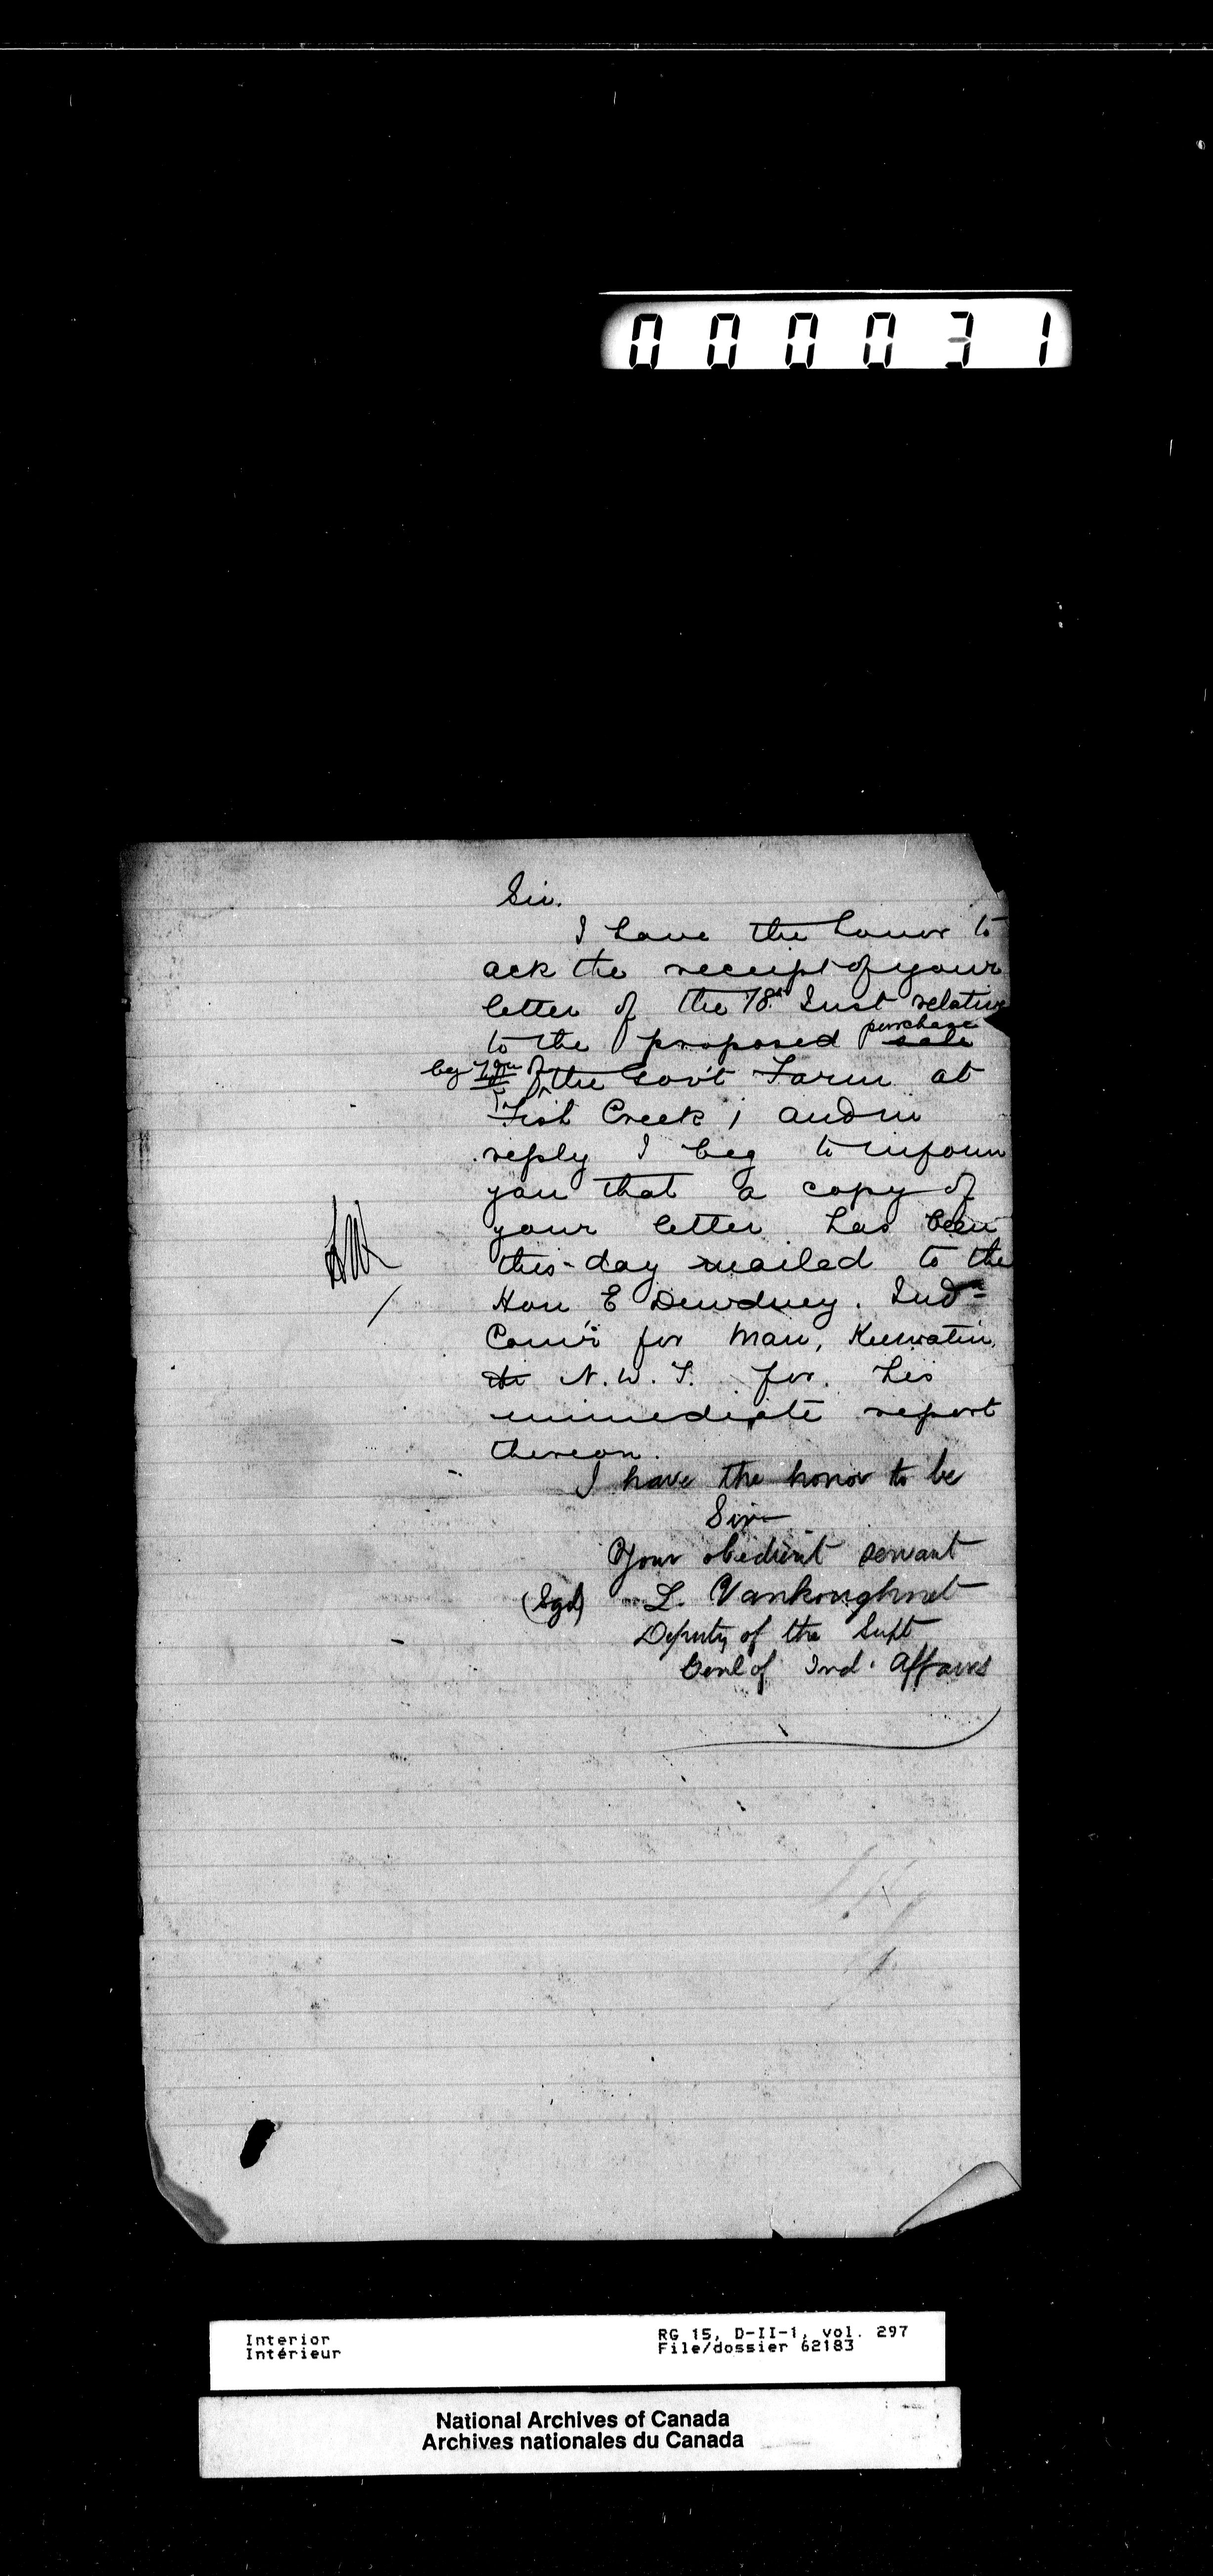 000031
Sir.
I have the honor to
ack the receipt of your
letter of the 18th Inst relative
purchase
to the proposed sale
by you of the Gov't Farm at
Fish Creek ; and in
reply I beg to inform
you that a copy of
your letter has been
this-day mailed to the
Hon E Dewdney. Indn
Com'r for Man, Keewatin,
N. W. T. for his
immediate report
thereon.
I have the honor to be
Sir
Your obedient servant
(Sgd) L. Vankoughnet
Deputy of the Supt
Genl of Ind. Affairs
Interior RG 15, D-II-1, vol. 297
Intérieur File/dossier 62183
National Archives of Canada
Archives nationales du Canada